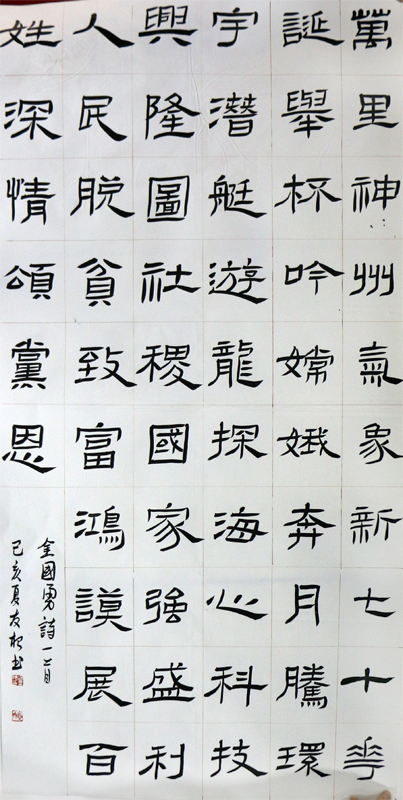 萬里神州氣象新七十華
誕舉杯吟嫦娥奔月騰環
宇潛艇遊龍探海心科技
興隆圖社稷國家強盛利
人民脫貧致富鴻謨展百
姓深情頌黨恩
金國勇詩一首
己亥夏友松书